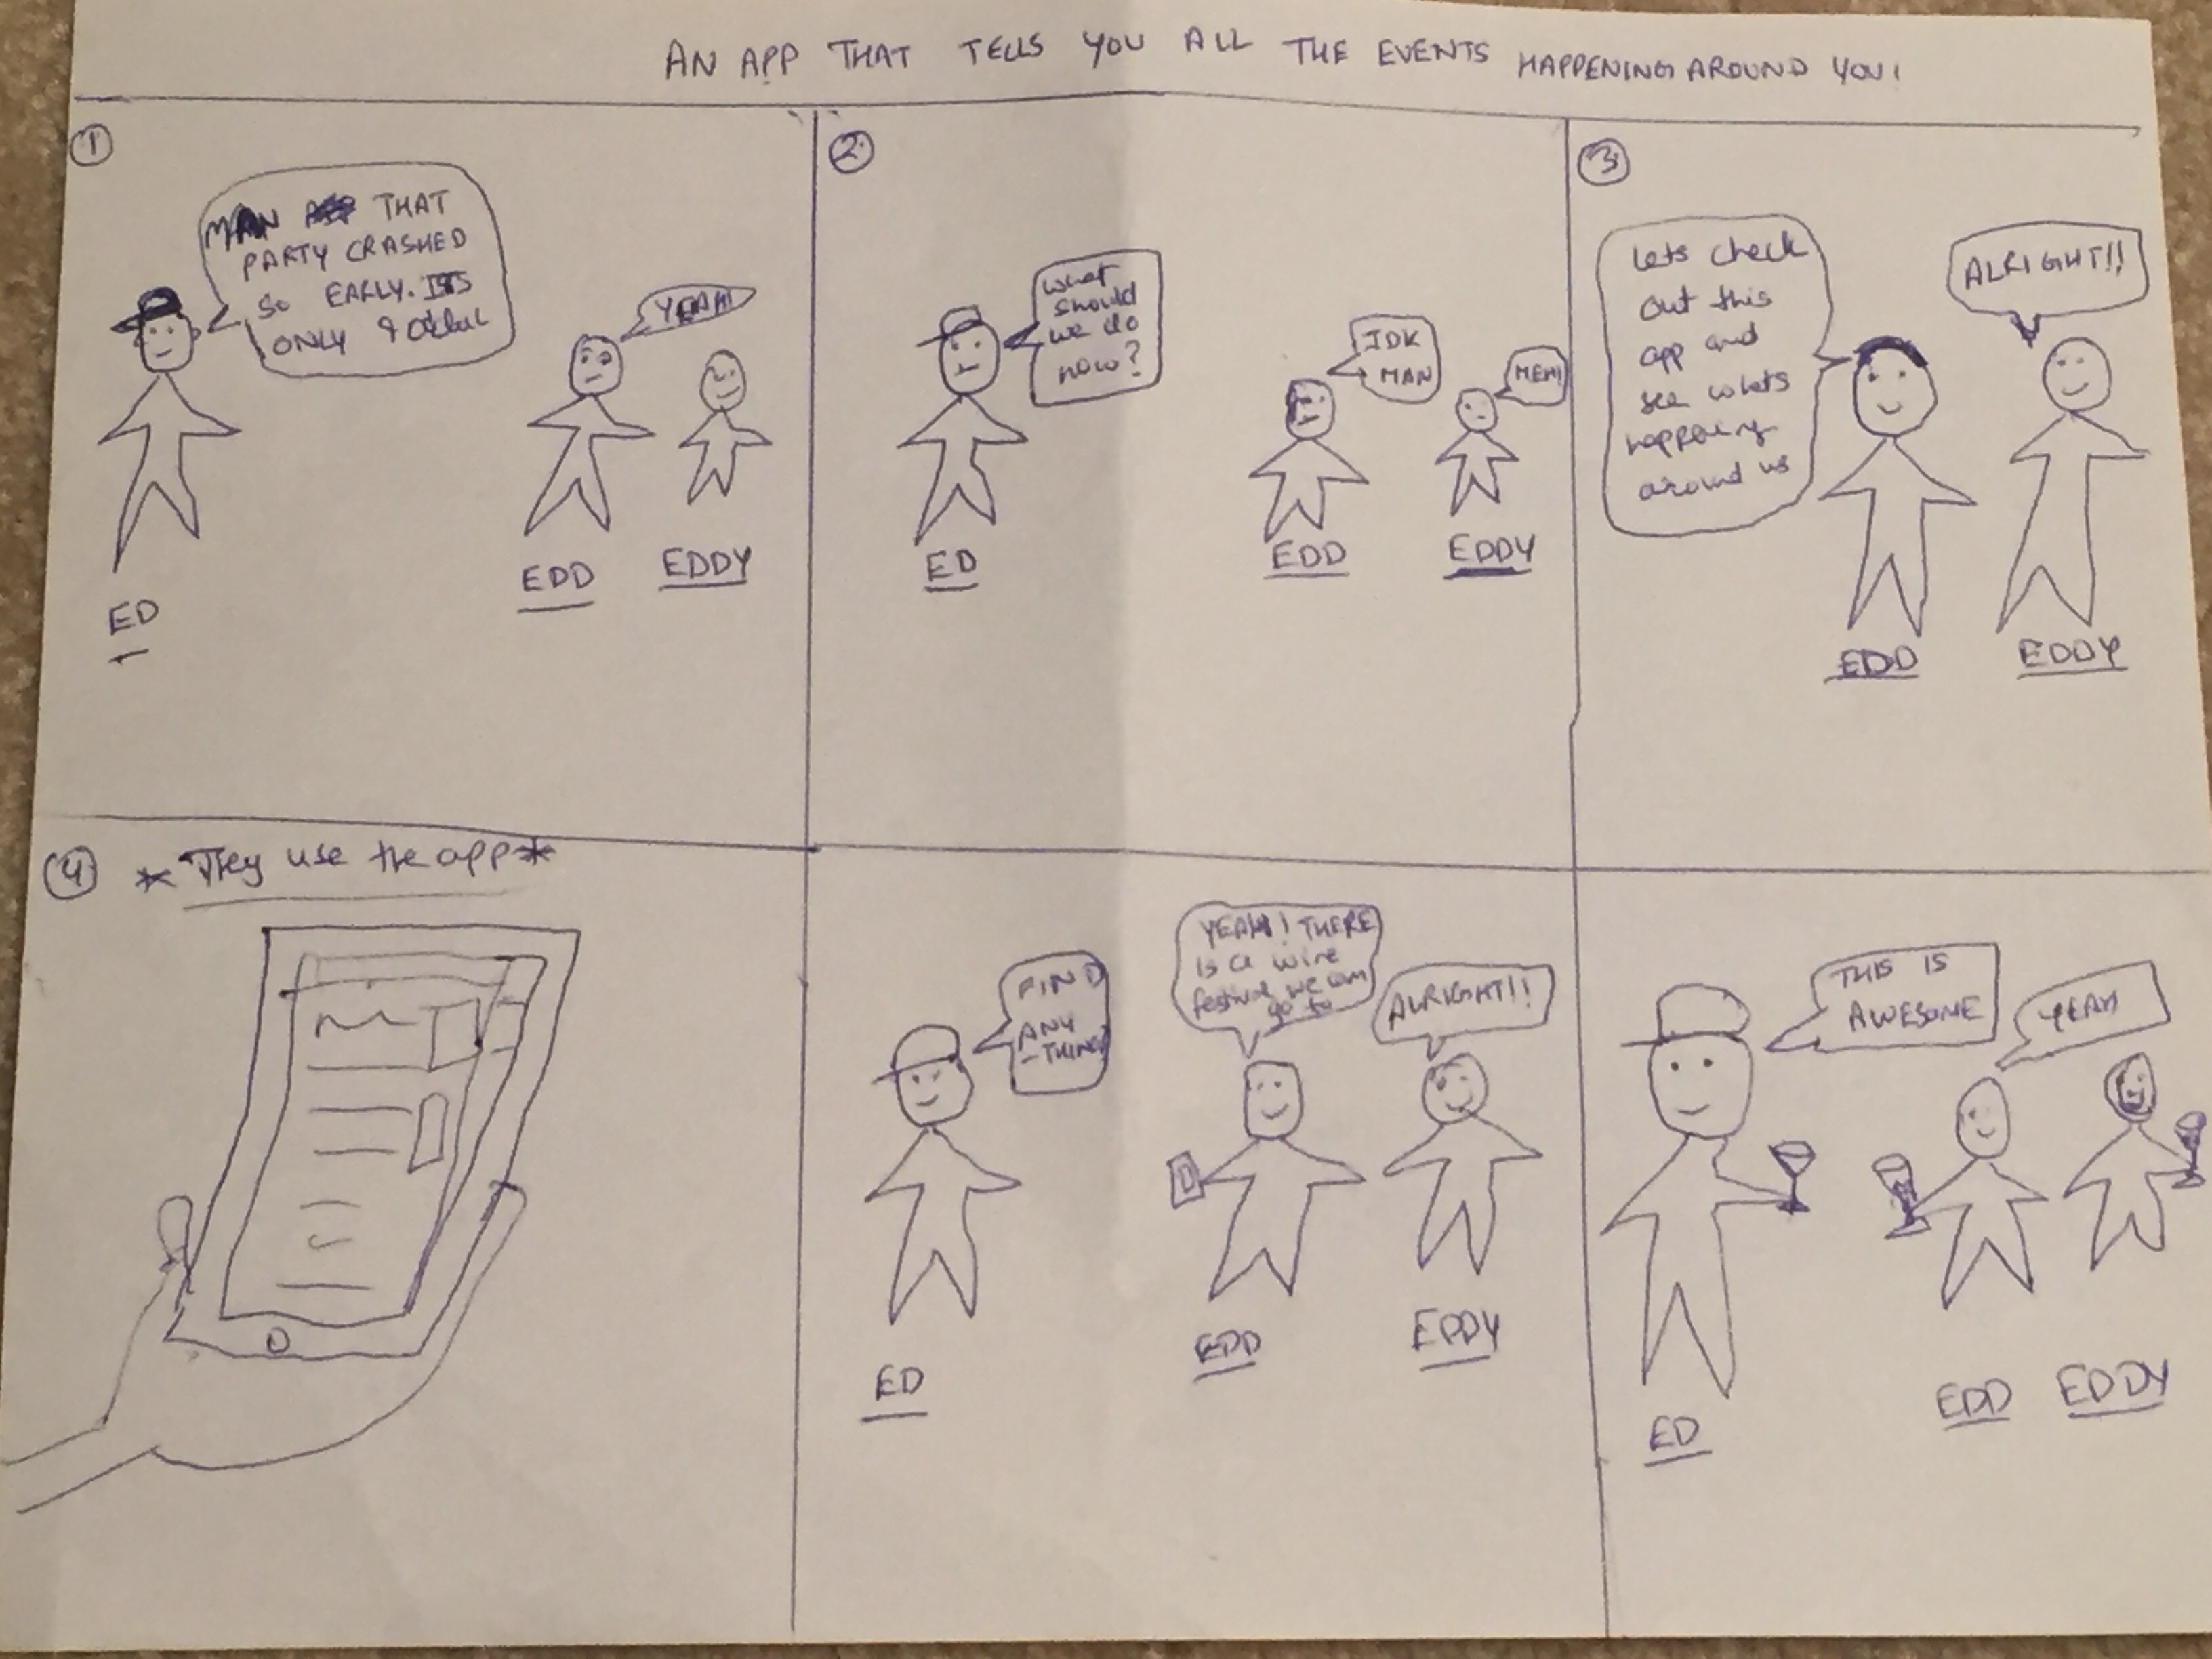 AN APP THAT TELLS YOU ALL THE EVENTS HAPPENING AROUND YOU!
1
MAN THAT
PARTY CRASHED
SO EARLY. ITS
ONLY 9 O'Clock
YEAH!
ED
EDD
EDDY
2
what
should
we do
now?
IDK
MAN
MEH!
ED
EDD
EDDY
3
Lets check
out this
app and
see whats
happening
around us
ALRIGHT!!
EDD
EDDY
4
*They use the app*
FIND
ANY
-THING?
YEAH! THERE
is a wine
festival we can
go to
ALRIGHT!!
ED
EDD
EDDY
THIS IS
AWESOME
YEAH
ED
EDD
EDDY